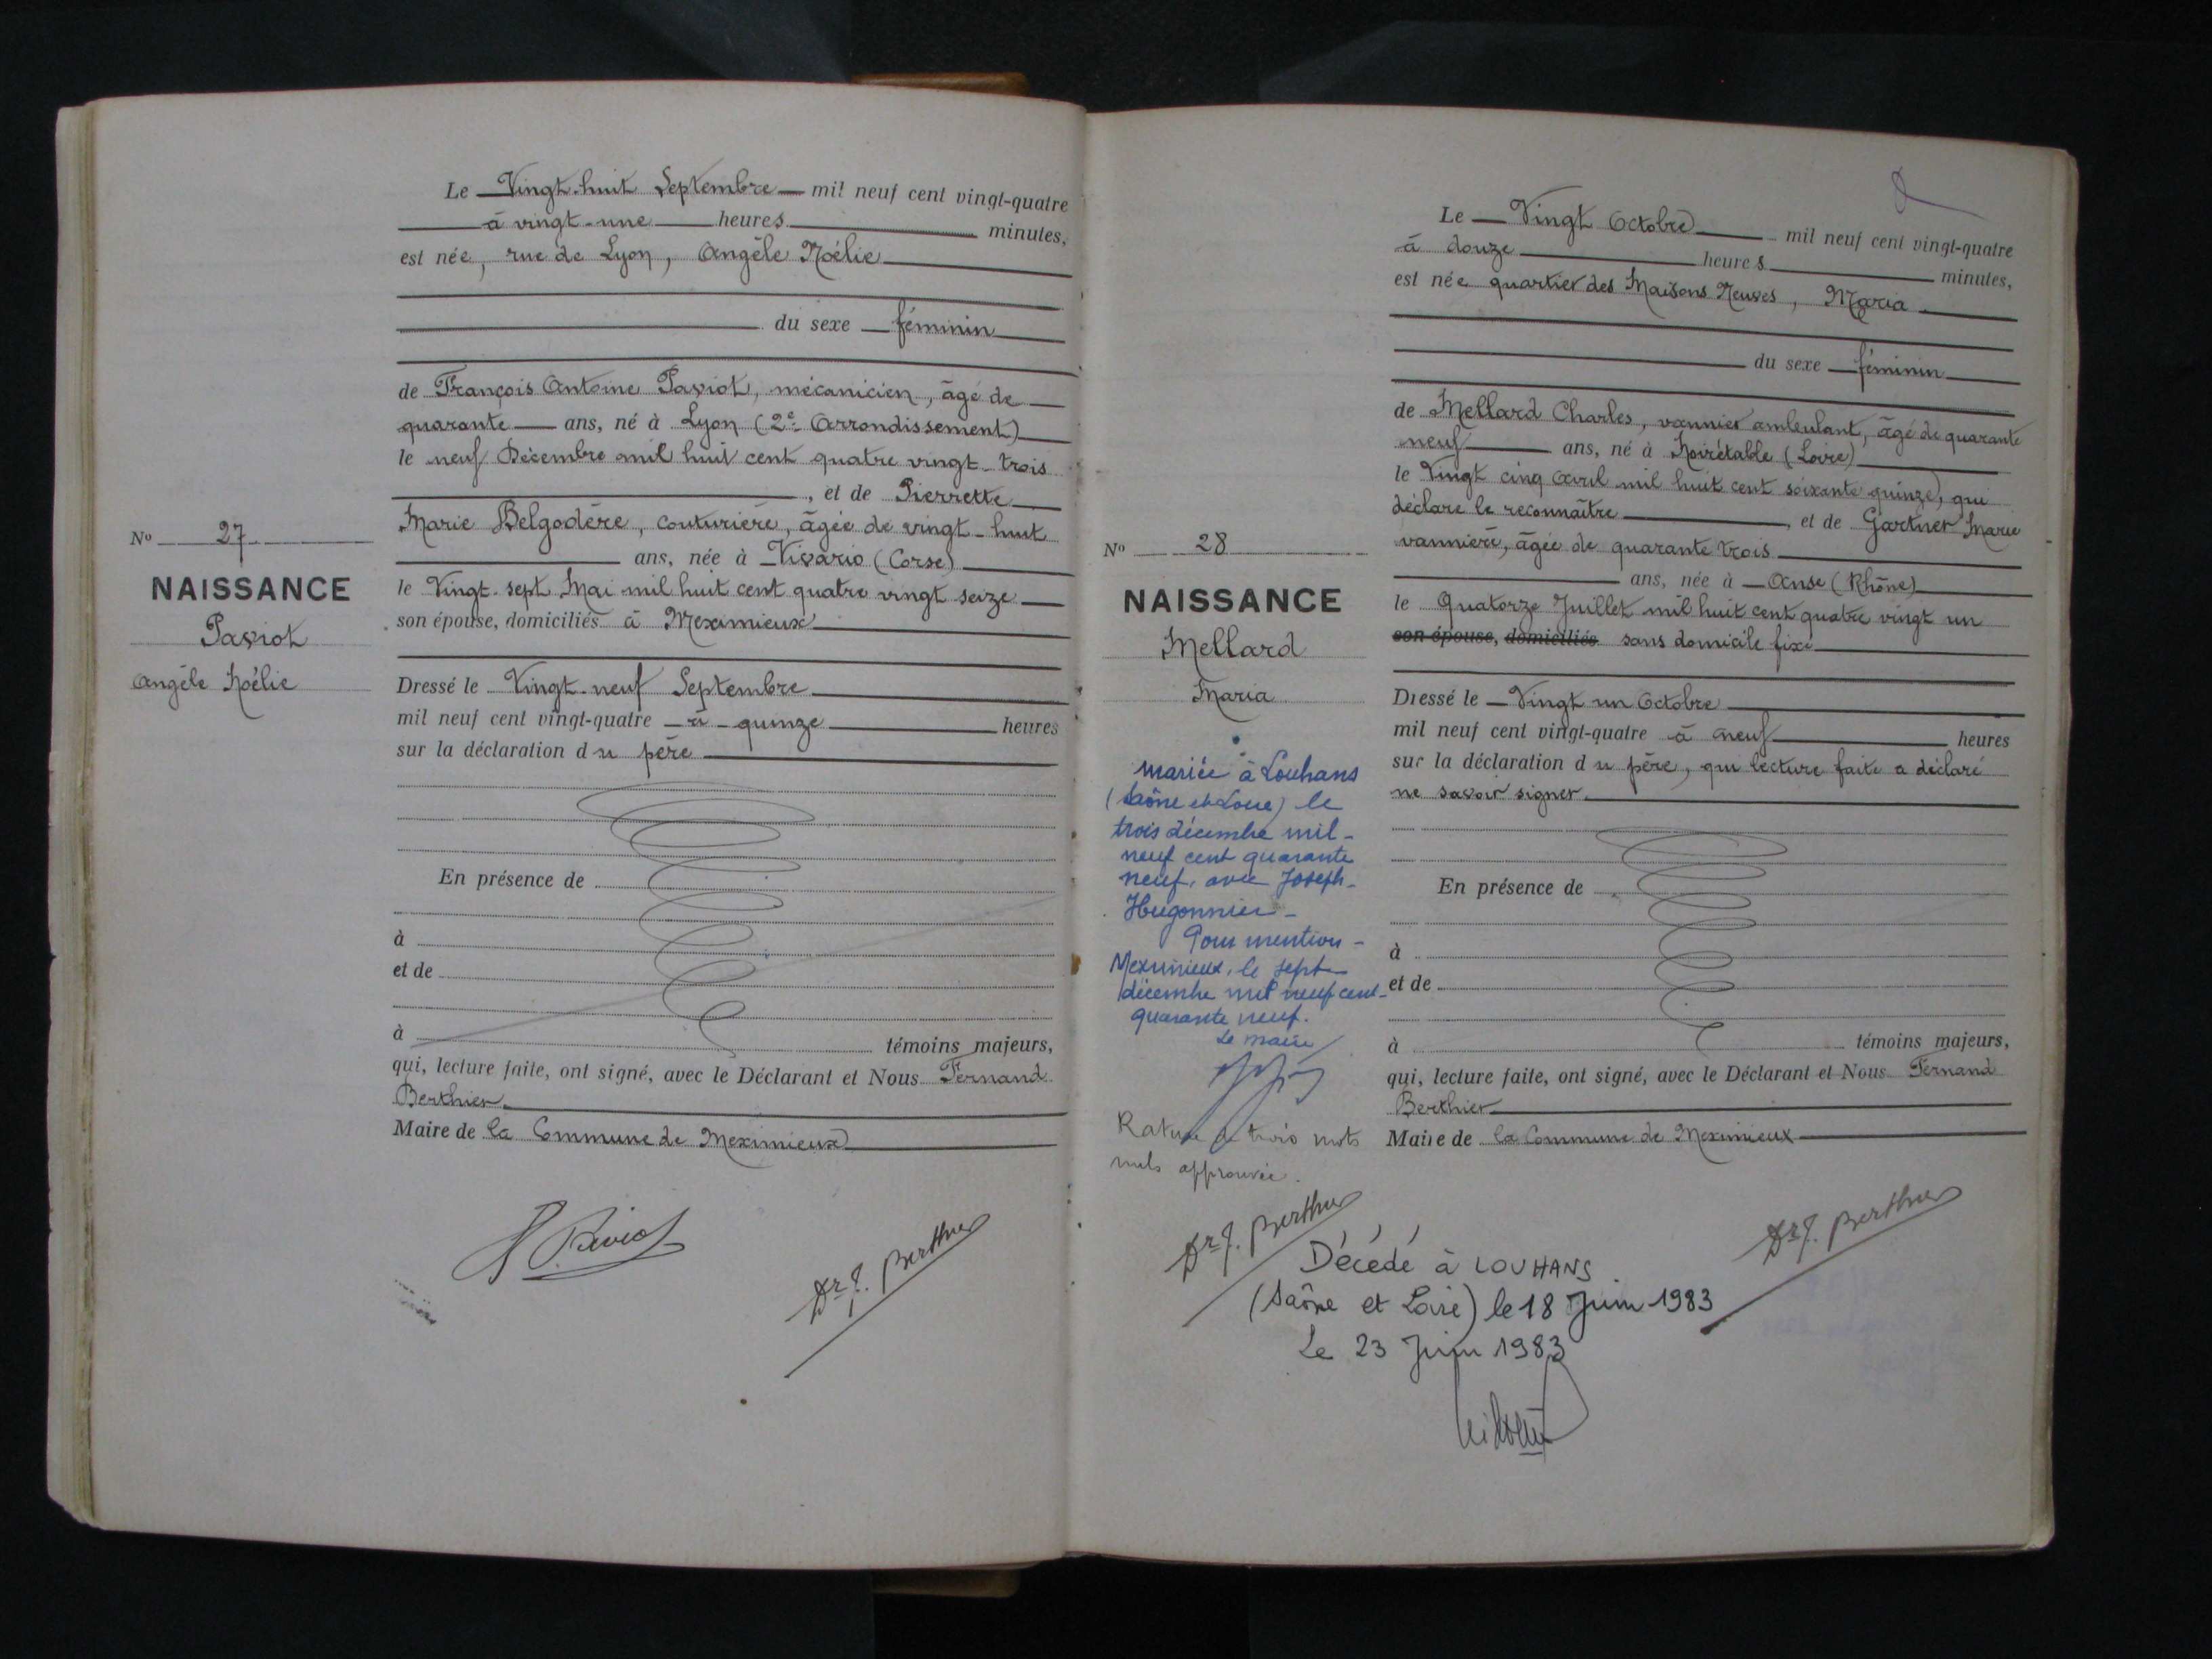 Le Vingt-huit Septembre mil neuf cent vingt-quatre
à vingt-une heures minutes,
est née, rue de Lyon, Angèle Noélie
du sexe féminin
de François Antoine Paviot, mécanicien, âgé de
quarante ans, né à Lyon (2e Arrondissement)
le neuf Décembre mil huit cent quatre vingt-trois
, et de Pierrette
Marie Belgodère, couturière, âgée de vingt-huit
ans, née à Vivario (Corse)
le Vingt-sept Mai mil huit cent quatre vingt seize
son épouse, domiciliés à Meximieux
Dressé le Vingt-neuf Septembre
mil neuf cent vingt-quatre à quinze heures
sur la déclaration du père
En présence de
à
et de
à témoins majeurs,
qui, lecture faite, ont signé, avec le Déclarant et Nous Fernand
Berthier
Maire de la Commune de Meximieux
No 27
NAISSANCE
Paviot
Angèle Noélie
Paviot
Dr F. Berthier
Le Vingt Octobre mil neuf cent vingt-quatre
à douze heures minutes,
est née quartier des Maisons Neuves, Maria
du sexe féminin
de Mellard Charles, vannier ambulant, âgé de quarante
neuf ans, né à Noirétable (Loire)
le Vingt cinq Avril mil huit cent soixante quinze, qui
déclare le reconnaître, et de Gartner Marie
vannière, âgée de quarante trois
ans, née à Anse (Rhône)
le Quatorze Juillet mil huit cent quatre vingt un
son épouse, domiciliés sans domicile fixe
Dressé le Vingt un Octobre
mil neuf cent vingt-quatre à neuf heures
sur la déclaration du père, qui lecture faite a déclaré
ne savoir signer.
En présence de
à
et de
à témoins majeurs,
qui, lecture faite, ont signé, avec le Déclarant et Nous Fernand
Berthier
Maire de la Commune de Meximieux
No 28
NAISSANCE
Mellard
Maria
mariée à Louhans
(Saône et Loire) le
trois décembre mil-
neuf cent quarante
neuf, avec Joseph-
Hugonnier-
Pour mention-
Meximieux, le sept
décembre mil neuf cent-
quarante neuf.
Le maire
Rature de trois mots
nuls approuvée.
Dr F. Berthier
Dr F. Berthier
Décédé à LOUHANS
(Saône et Loire) le 18 Juin 1983
Le 23 Juin 1983